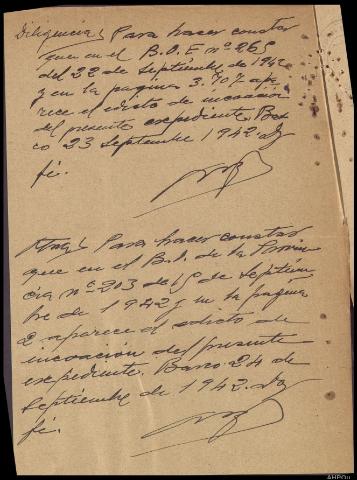 Diligencia) Para hacer constar
que en el B. O. E nº 265
del 22 de Septiembre de 1942
y en la pagina 3.707 apa
rece el edicto de incoación
del presente expediente. Bar
co 23 Septiembre 1942. doy
fé.
Otra) Para hacer constar
que en el B. O. de la Provin
cia nº 203 de 15 de septiem
bre de 1942 y en la página
2 aparece el edicto de
incoación del presente
expediente. Barco 24 de
Septiembre de 1942. doy
fé.
AHPOu